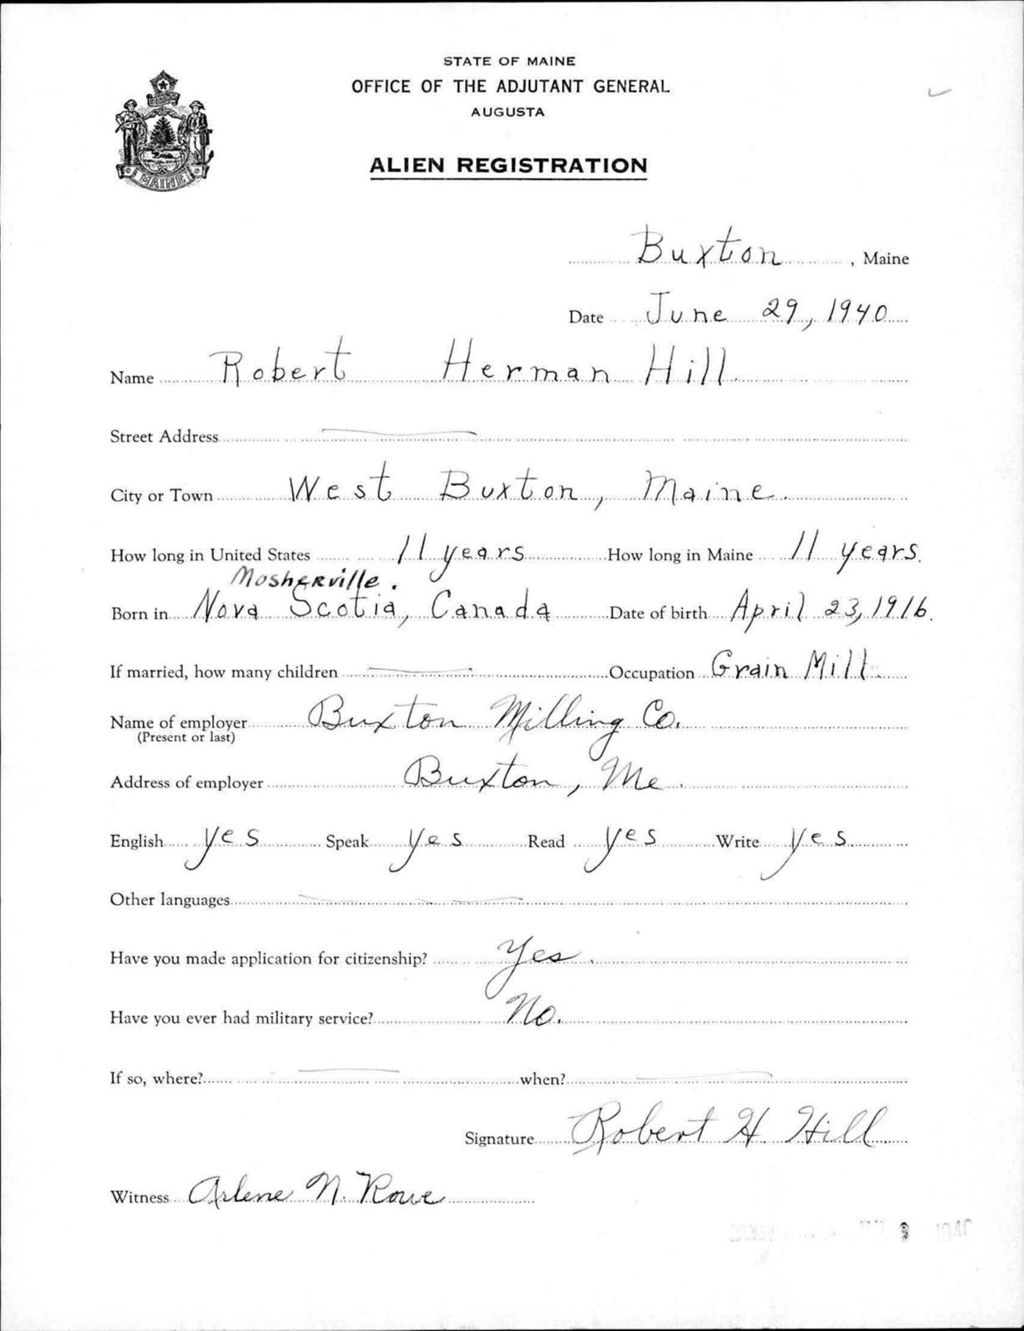 STATE OF MAINE
OFFICE OF THE ADJUTANT GENERAL
AUGUSTA
ALIEN REGISTRATION
MAINE
Buxton, Maine
Date June 29, 1940
Name Robert Herman Hill
Street Address
City or Town West Buxton, Maine.
How long in United States 11 years How long in Maine 11 years.
Mosherville.
Born in Nova Scotia, Canada Date of birth April 23, 1916.
If married, how many children Occupation Grain Mill.
Name of employer Buxton Milling Co.
(Present or last)
Address of employer Buxton, Me.
English yes Speak yes Read yes Write yes
Other languages
Have you made application for citizenship? Yes.
Have you ever had military service? No.
If so, where? when?
Signature Robert H. Hill
Witness Arlene N. Rowe